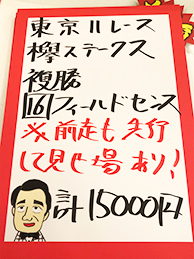 東京11レース
欅ステークス
複勝
16フィールドセンス
※前走も先行
して見せ場あり!
計15000円